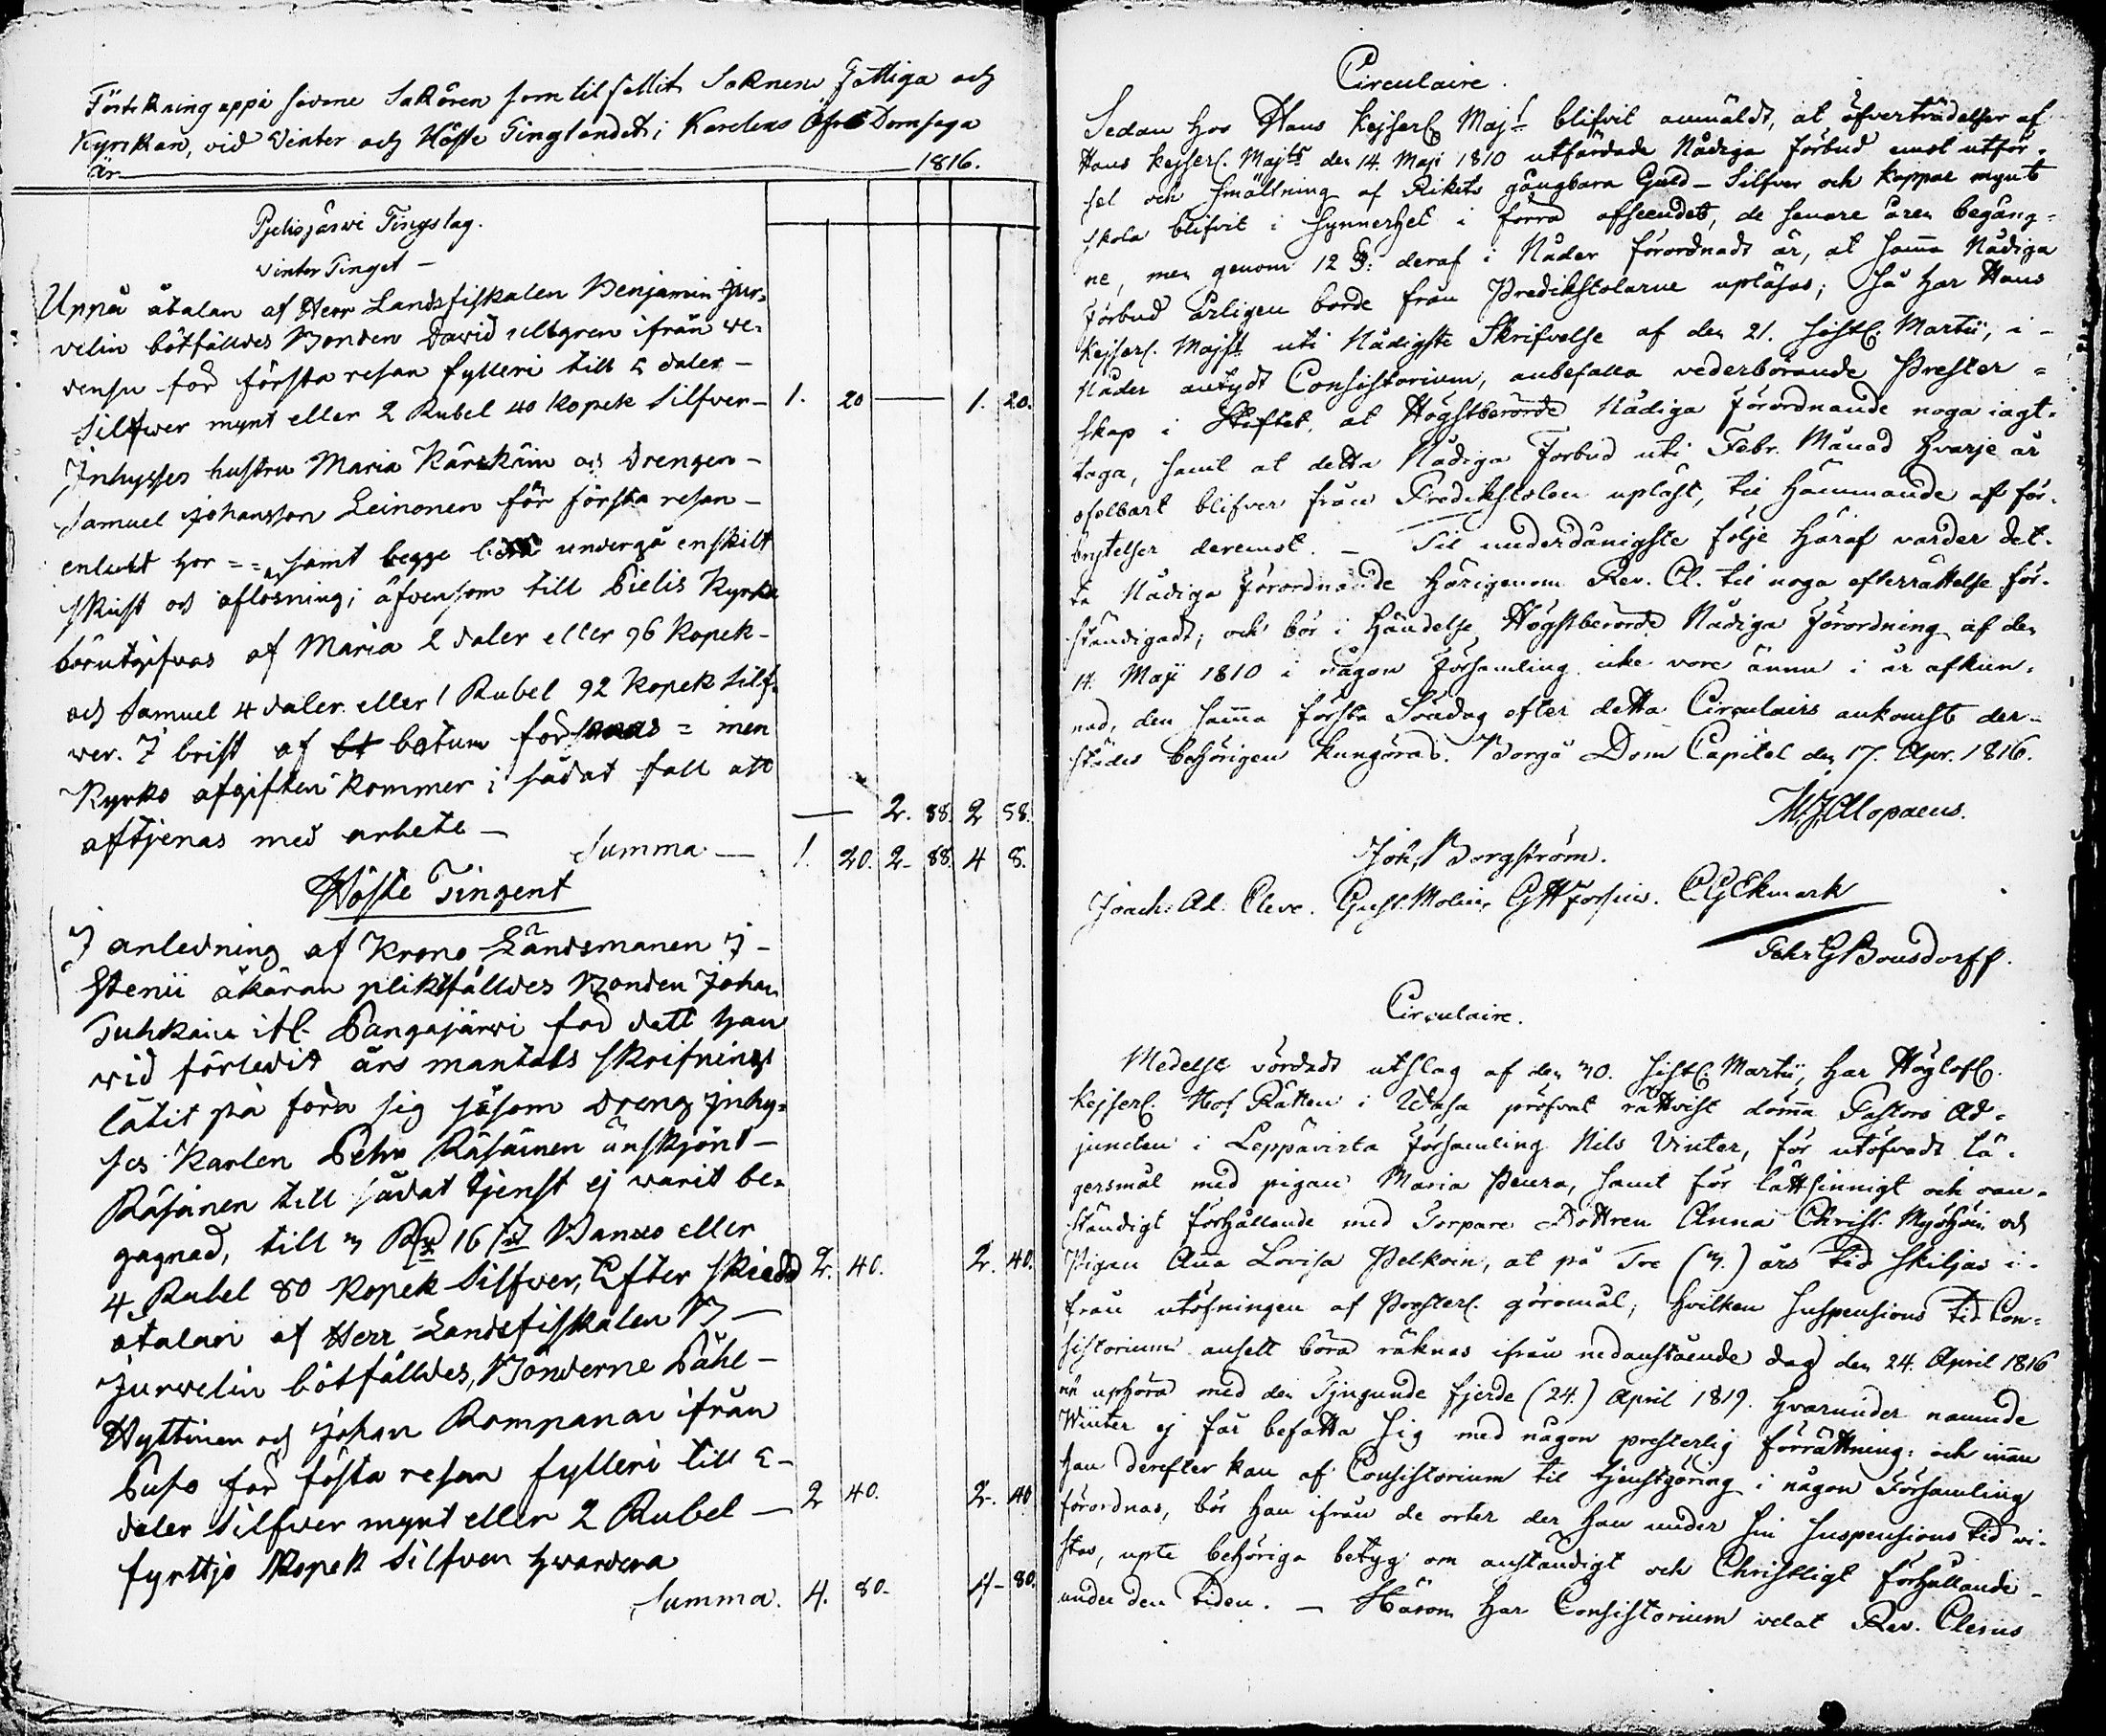 Förtekning uppå sådane Sakören som tilfallit Soknens Fattiga och
Kyrkan, vid Vinter och Höste Tinglandet i Karelens Öfre Domsaga
år 1816.
Pjelisjärwi Tingslag.
Vinter Tinget –
Uppå åtalan af Herr Landsfiskalen Benjamin Jur-
velin bötfälldes Bonden David Ultgren ifrån We-
densu för första resan fylleri till 5 daler –
Silfwer mynt eller 2 Rubel 40 Kopek Silfver – 1. 20 — 1. 20.
Inhysses hustru Maria Kärkäin och Drengen –
Samuel Johansson Leinonen för första resan –
enkelt hor = = samt begge undergå enskilt
skrift och aflösning; äfvensom till Pielis Kyrka
börutgifvas af Maria 2 daler eller 96 Kopek –
och Samuel 4 daler eller 1 Rubel 92 Kopek Silf-
wer. I brist af botum = men
Kyrko afgiften kommer i sådat fall att
aftjenas med arbete – — 2. 88. 2 58.
Summa — 1. 20. 2 – 88. 4 8.
Höste Tingent
I anledning af Krono Länsmanen J –
Stenii åkäran pliktfälldes Bonden Johan
Tuhkain Pangajärwi för dett han
wid förledit års mantals skrifnings
låtit påföra sig såsom Dreng Inhy-
ses Karlen Pehr Räsäinen änskjönt –
Räsäinen till sådat tjenst ej warit be-
gagnad, till 3 16 Banco eller
4 Rubel 80 Kopek Silfwer, Efter skiedd 2. 40. 2. 40.
åtalan af Herr Landsfiskalen B –
Jurwelin bötfälldes, Bönderne Påhl –
Hyttinen och Johan Rompanen ifrån
Puso för fösta resan fylleri till 5 –
daler Silfwer mynt eller 2 Rubel — 2 40. 2. 40
fyrttjo Kopek Silfver hvardera
Summa. 4. 80 – 4 – 80.
Circulaire.
Sedan hos Hans Kejserl. Majt blifvit anmäldt, at öfverträdelser af
Hans Kejserl. Majts den 14. Maji 1810 utfärdade Nådiga förbud emot utför-
sel och smältning af Rikets gångbara Guld – Silfver och kappar mynt
skola blifvit i synnerhet i förra afseendet, de senare åren begång-
ne, men genom 12 §: deraf i Nåder förordnadt är, at samma Nådiga
förbud årligen borde från Predikstolarne upläsas; så har Hans
Kejserl. Majst uti Nådigste Skrifvelse af den 21. sistl. Martii, i –
Nåder antydt Consistorium, anbefalla vederbörande Prester =
skap i Stiftet, at Högstberörde Nådiga förordnande noga iagt-
taga, samt at detta Nådiga Förbud uti Febr. Månad hvarje år
ofelbart blifver från Predikstolen upläst, til hämmande af för-
brytelser deremot. – Til underdånigste följe häraf varder det-
ta Nådiga Förordnande härigenom Rev. Cl. til noga efterrättelse för-
ständigadt; och bör i händelse Högstberörde Nådiga Förordning af den
14. Maji 1810 i någon församling icke vore ännu i år afkun-
nad, den samma första Söndag efter detta Circulairs ankomst der-
städes behörigen kungöras. Borgå Dom Capitel den 17. Apr. 1816.
M. J. Alopaeus.
Joh. Borgström.
Joach: Ad. Cleve. Gust. Molin, G H Forsius. C G Ekmark
Fehr G Bonsdorff.
Circulaire.
Medelst vördadt utslag af den 30. sistl. Martii, har Höglofl.
Kejserl. Hof Rätten i Wasa pröfvat rättvist döma Pastors Ad-
juncten i Leppävirta Församling Nils Vinter, för utöfvadt lä-
gersmål med pigan Maria Peura, samt för lättsinnigt och oan-
ständigt förhållande med Torpare Dottren Anna Christ. Myöhäin och
Pigan Anna Lovisa Pelkoin, at på Tre (3.) års tid skiljas i-
från utöfningen af Presterl. göromål; hvilken suspensions tid Con-
sistorium ansett böra räknas ifrån nedanstående dag den 24. April 1816
upphöra med den Tjugunde fjerde (24.) April 1819. hvarunder namnde
Winter ej får befatta sig med någon presterlig förrättning: och innan
han derefter kan af Consistorium til tjenstgöring i någon Församling
förordnas, bör han ifrån de orter der han under sin suspensions tid vi-
stas, upte behöriga betyg om anständigt och Christligt förhållande –
under den tiden. – Härom har Consistorium velat Rev. Clerus